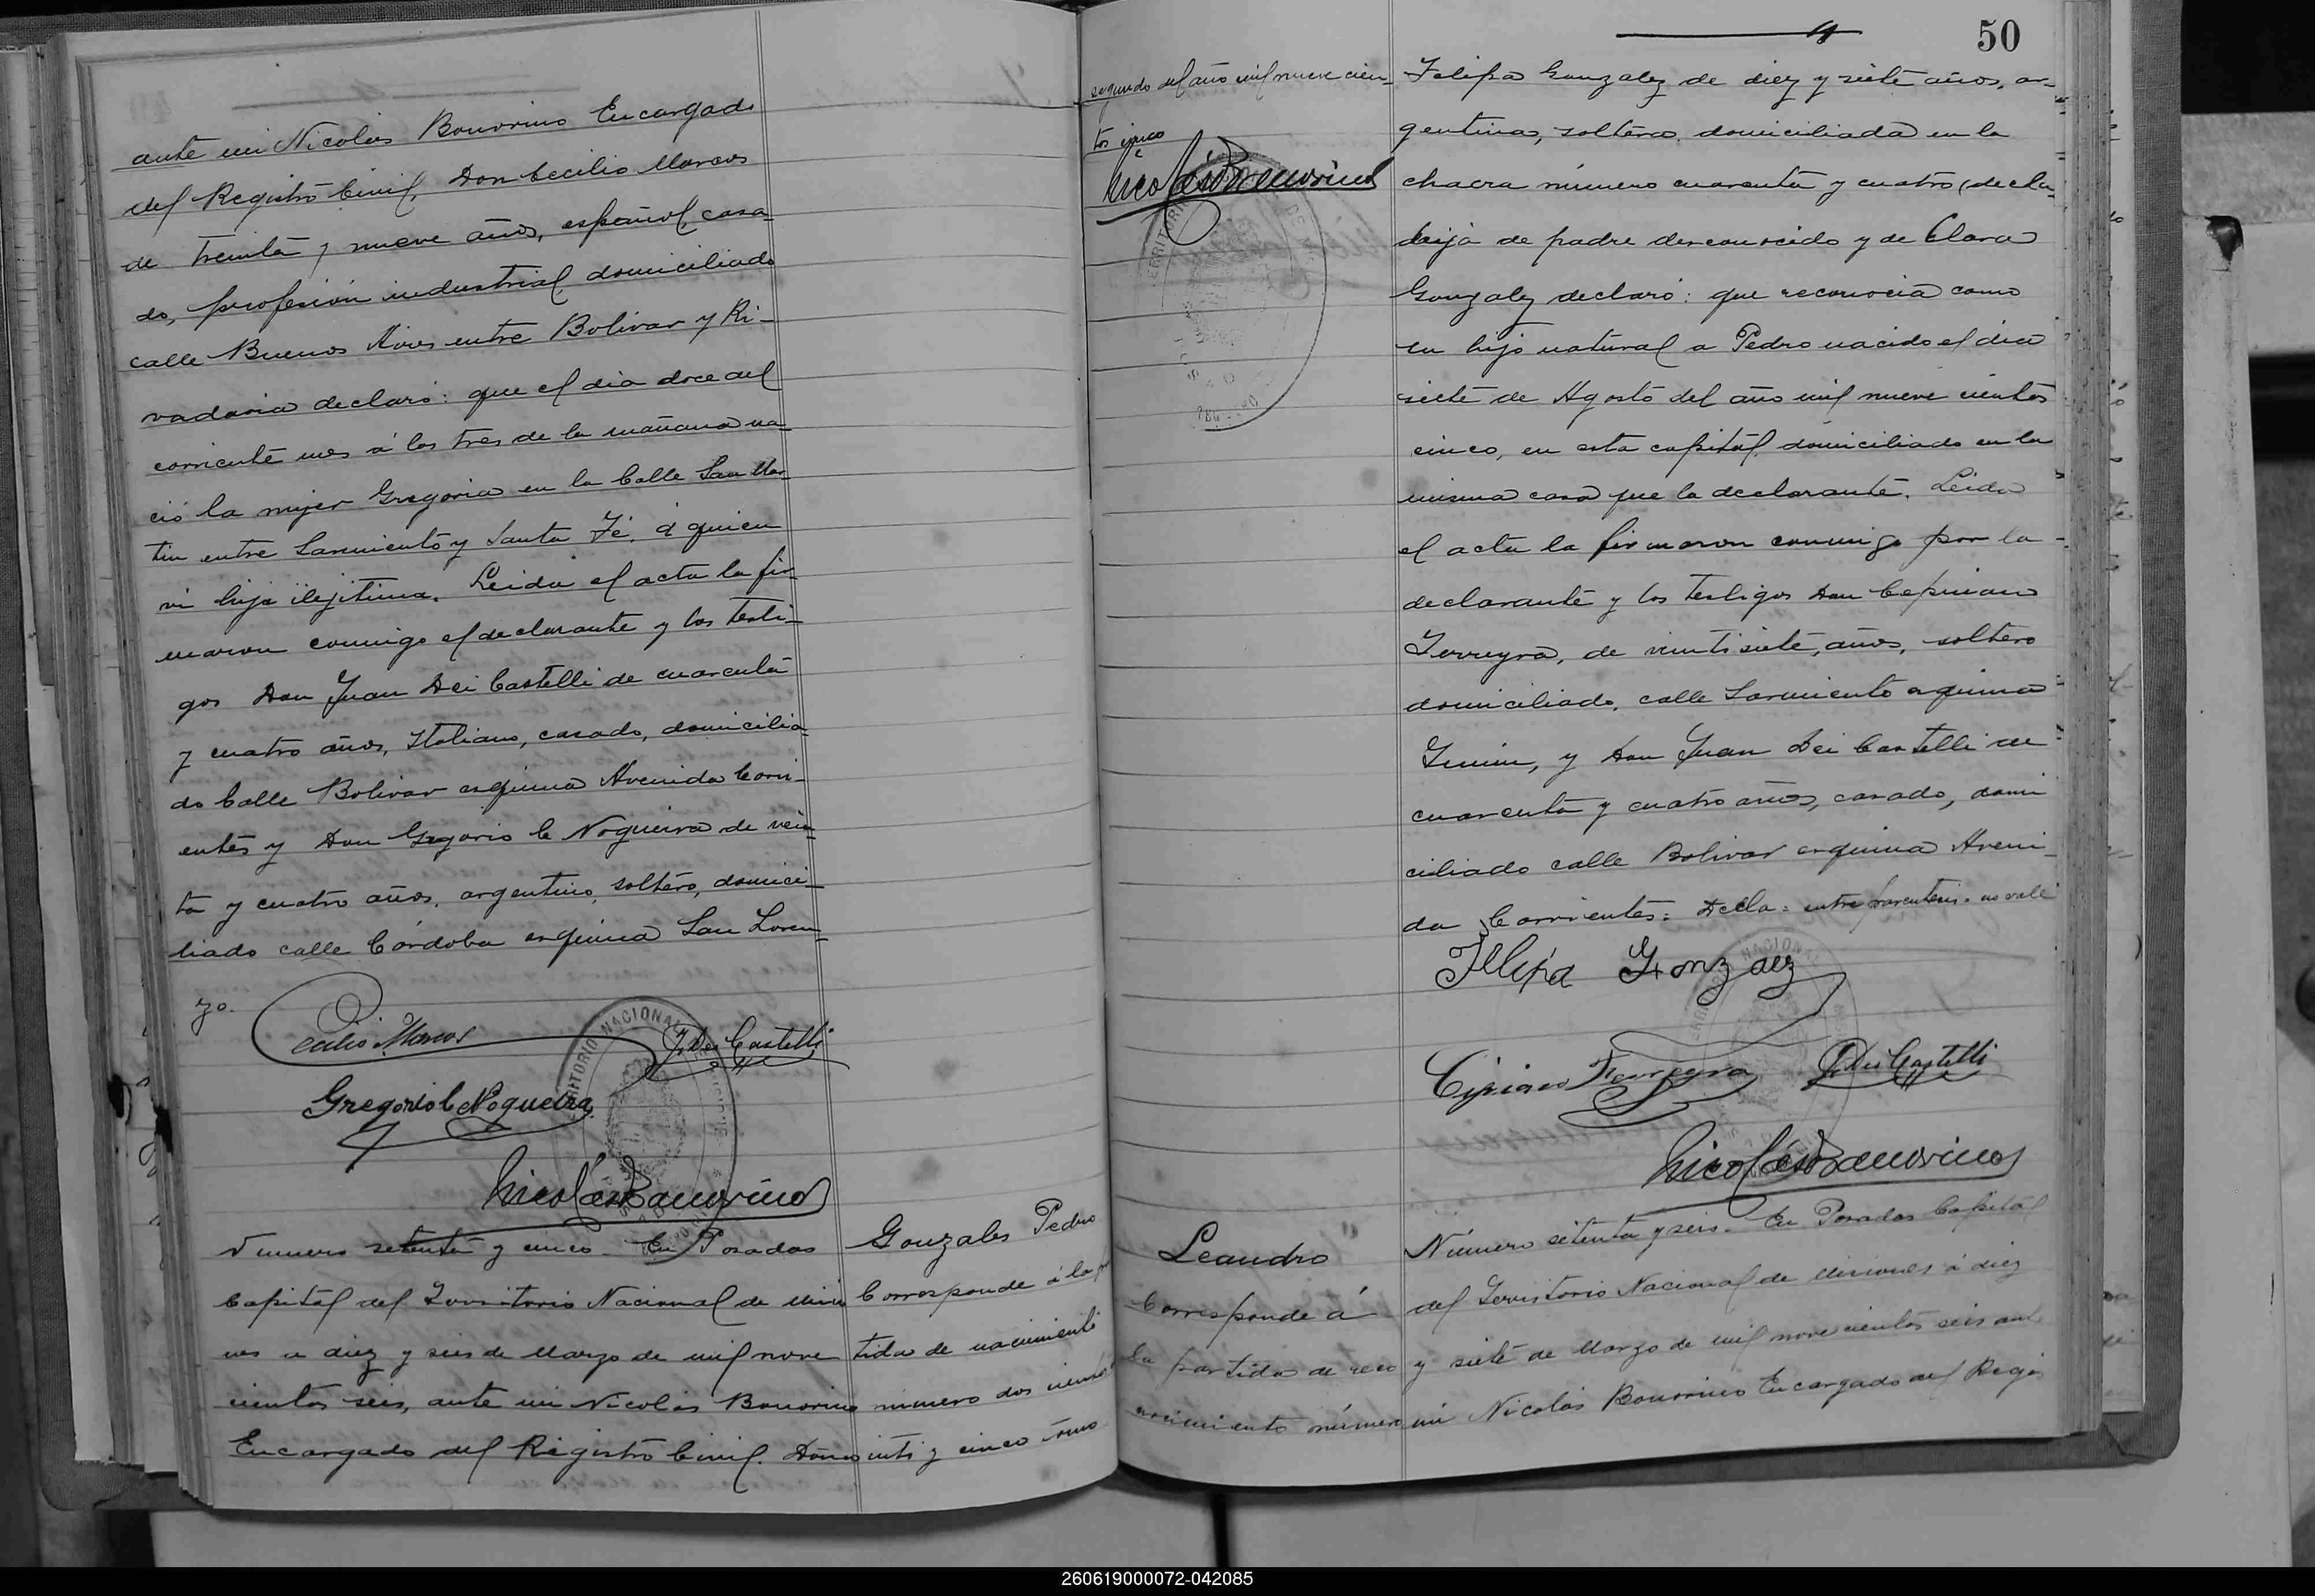 ante mi Nicolás Bonorino Encargado
del Registro Civil, Don Cecilio Marcos
de treinta y nueve años, español, casa-
do, profesión industrial, domiciliado
calle Buenos Aires entre Bolivar y Ri-
vadavia declaró: que el dia doce del
corriente mes á las tres de la mañana na-
ció la mujer Gregoria en la Calle San Mar-
tin entre Sarmiento y Santa Fé, á quien
vi hija ilejitima. Leida el acta la fir-
maron conmigo el declarante y los testi-
gos Don Juan Dei Castelli de cuarenta
y cuatro años, Italiano, casado, domicilia-
do Calle Bolivar esquina Avenida Corri-
entes y Don Gregorio C Nogueira de vein-
ta y cuatro años, argentino, soltero, domici-
liado calle Córdoba esquina San Loren-
zo.
Cecilio Marcos
J. Dei Castelli
Gregorio C Nogueira
Nicolás Bonorino
TERRITORIO NACIONAL
Numero setenta y cinco. En Posadas
Capital del Territorio Nacional de Misio
nes a diez y seis de Marzo de mil nove
cientos seis, ante mi Nicolás Bonorino
Encargado del Registro Civil. Doña
Gonzales Pedro
Corresponde á la
tida de nacimiento
número dos cientos
inti y cinco tomo
50
segundo del año mil nueve cien-
tos cinco
Nicolás Bonorino
Felipa Gonzalez de diez y siete años, ar-
gentina, soltera, domiciliada en la
chacra número cuarenta y cuatro (decla-
hija de padre desconocido y de Clara
Gonzalez declaró: que reconocia como
su hijo natural a Pedro nacido el dia
siete de Agosto del año mil nueve cientos
cinco, en esta capital, domiciliado en la
misma casa que la declarante. Leida
el acta la firmaron conmigo por la
declarante y los testigos Don Cipriano
Ferreyra, de veinti siete, años, soltero
domiciliado, calle Sarmiento esquina
Junin, y Don Juan Dei Castelli de
cuarenta y cuatro años, casado, domi
ciliado calle Bolivar esquina Aveni-
da Corrientes: Decla: entre parentesis. no vale
Felipa Gonzaez
Cipriano Ferreyra
J. Dei Castelli
Nicolás Bonorino
Leandro
Corresponde á
la partida de reco
nocimiento número
Número setenta y seis. En Posadas Capital
del Territorio Nacional de Misiones á diez
y siete de Marzo de mil nove cientos seis ante
mi Nicolás Bonorino Encargado del Regis
260619000072-042085